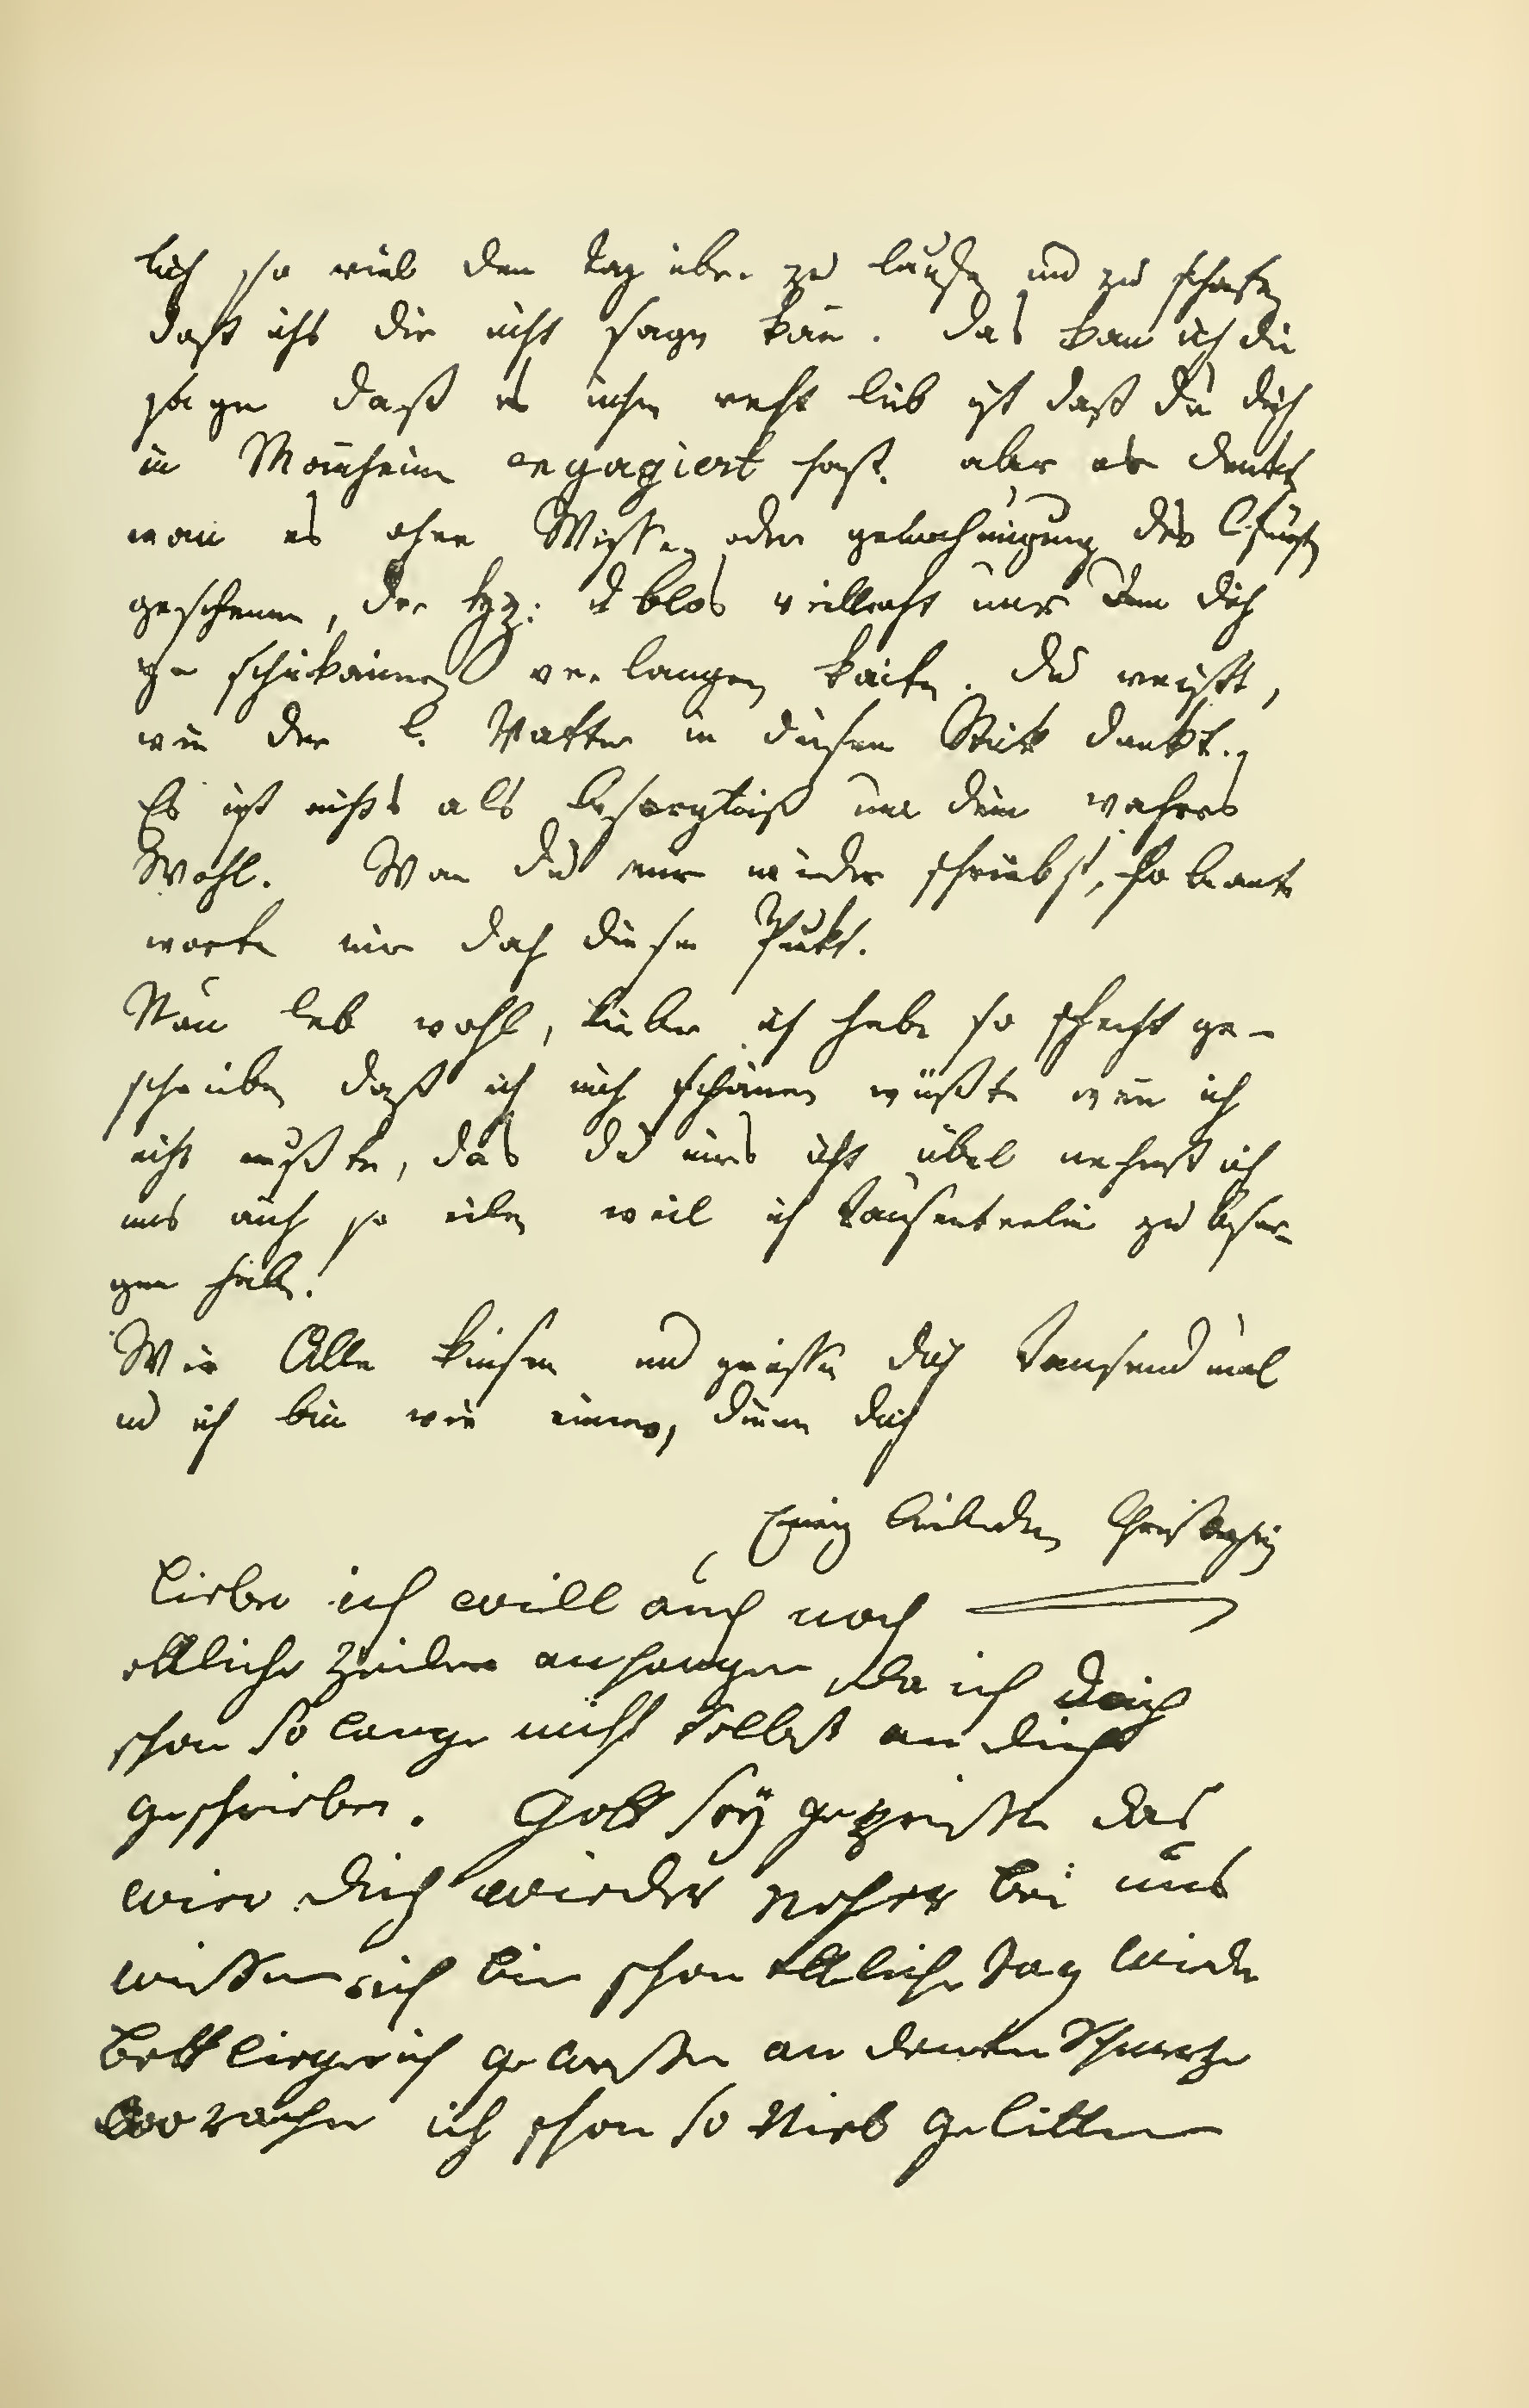 lich so viel den Tag über zu laufen und zu schafen
daß ichs dir nicht sagn kan. das kan ich dir
sagen daß es ihm recht lieb ist daß du dich
in Manheim engagiert hast. aber er denkt
wan es ohne Wissen oder genehmigung des
geschehen, der blos villeicht nur um dich
zu schikanieren verlangen könte. Du weißt,
wie der l. Vatter in diesem Stük denkt.
Es ist nichts als besorgtniß um dein wahres
Wohl. Wan du mir wieder schreibst, so beant
worte mir doch diesen Pukt.
Nun leb wohl, Lieber ich habe so schlecht ge-
schrieben daß ich mich schämen müßte wen ich
nicht wußte, das du mirs nicht übel nehmst ich
mus auch so eilen weil ich Tausenterlei zu besor-
gen habe.
Wir Alle küsen und grüssen dich Tausend mal
und ich bin wie immer, deine dich
Ewig liebenden Christophin
Lieber ich will auch noch
ettliche Zeilen anhangen da ich
schon so lange nicht selbst an dich
geschrieben. Gott sey geprisen das
wier dich wieder neher bei uns
wissen ich bin schon ettliche Tag wieder
Bettliegerich gewessen an denen Schmertzen
ich schon so viel gelitten